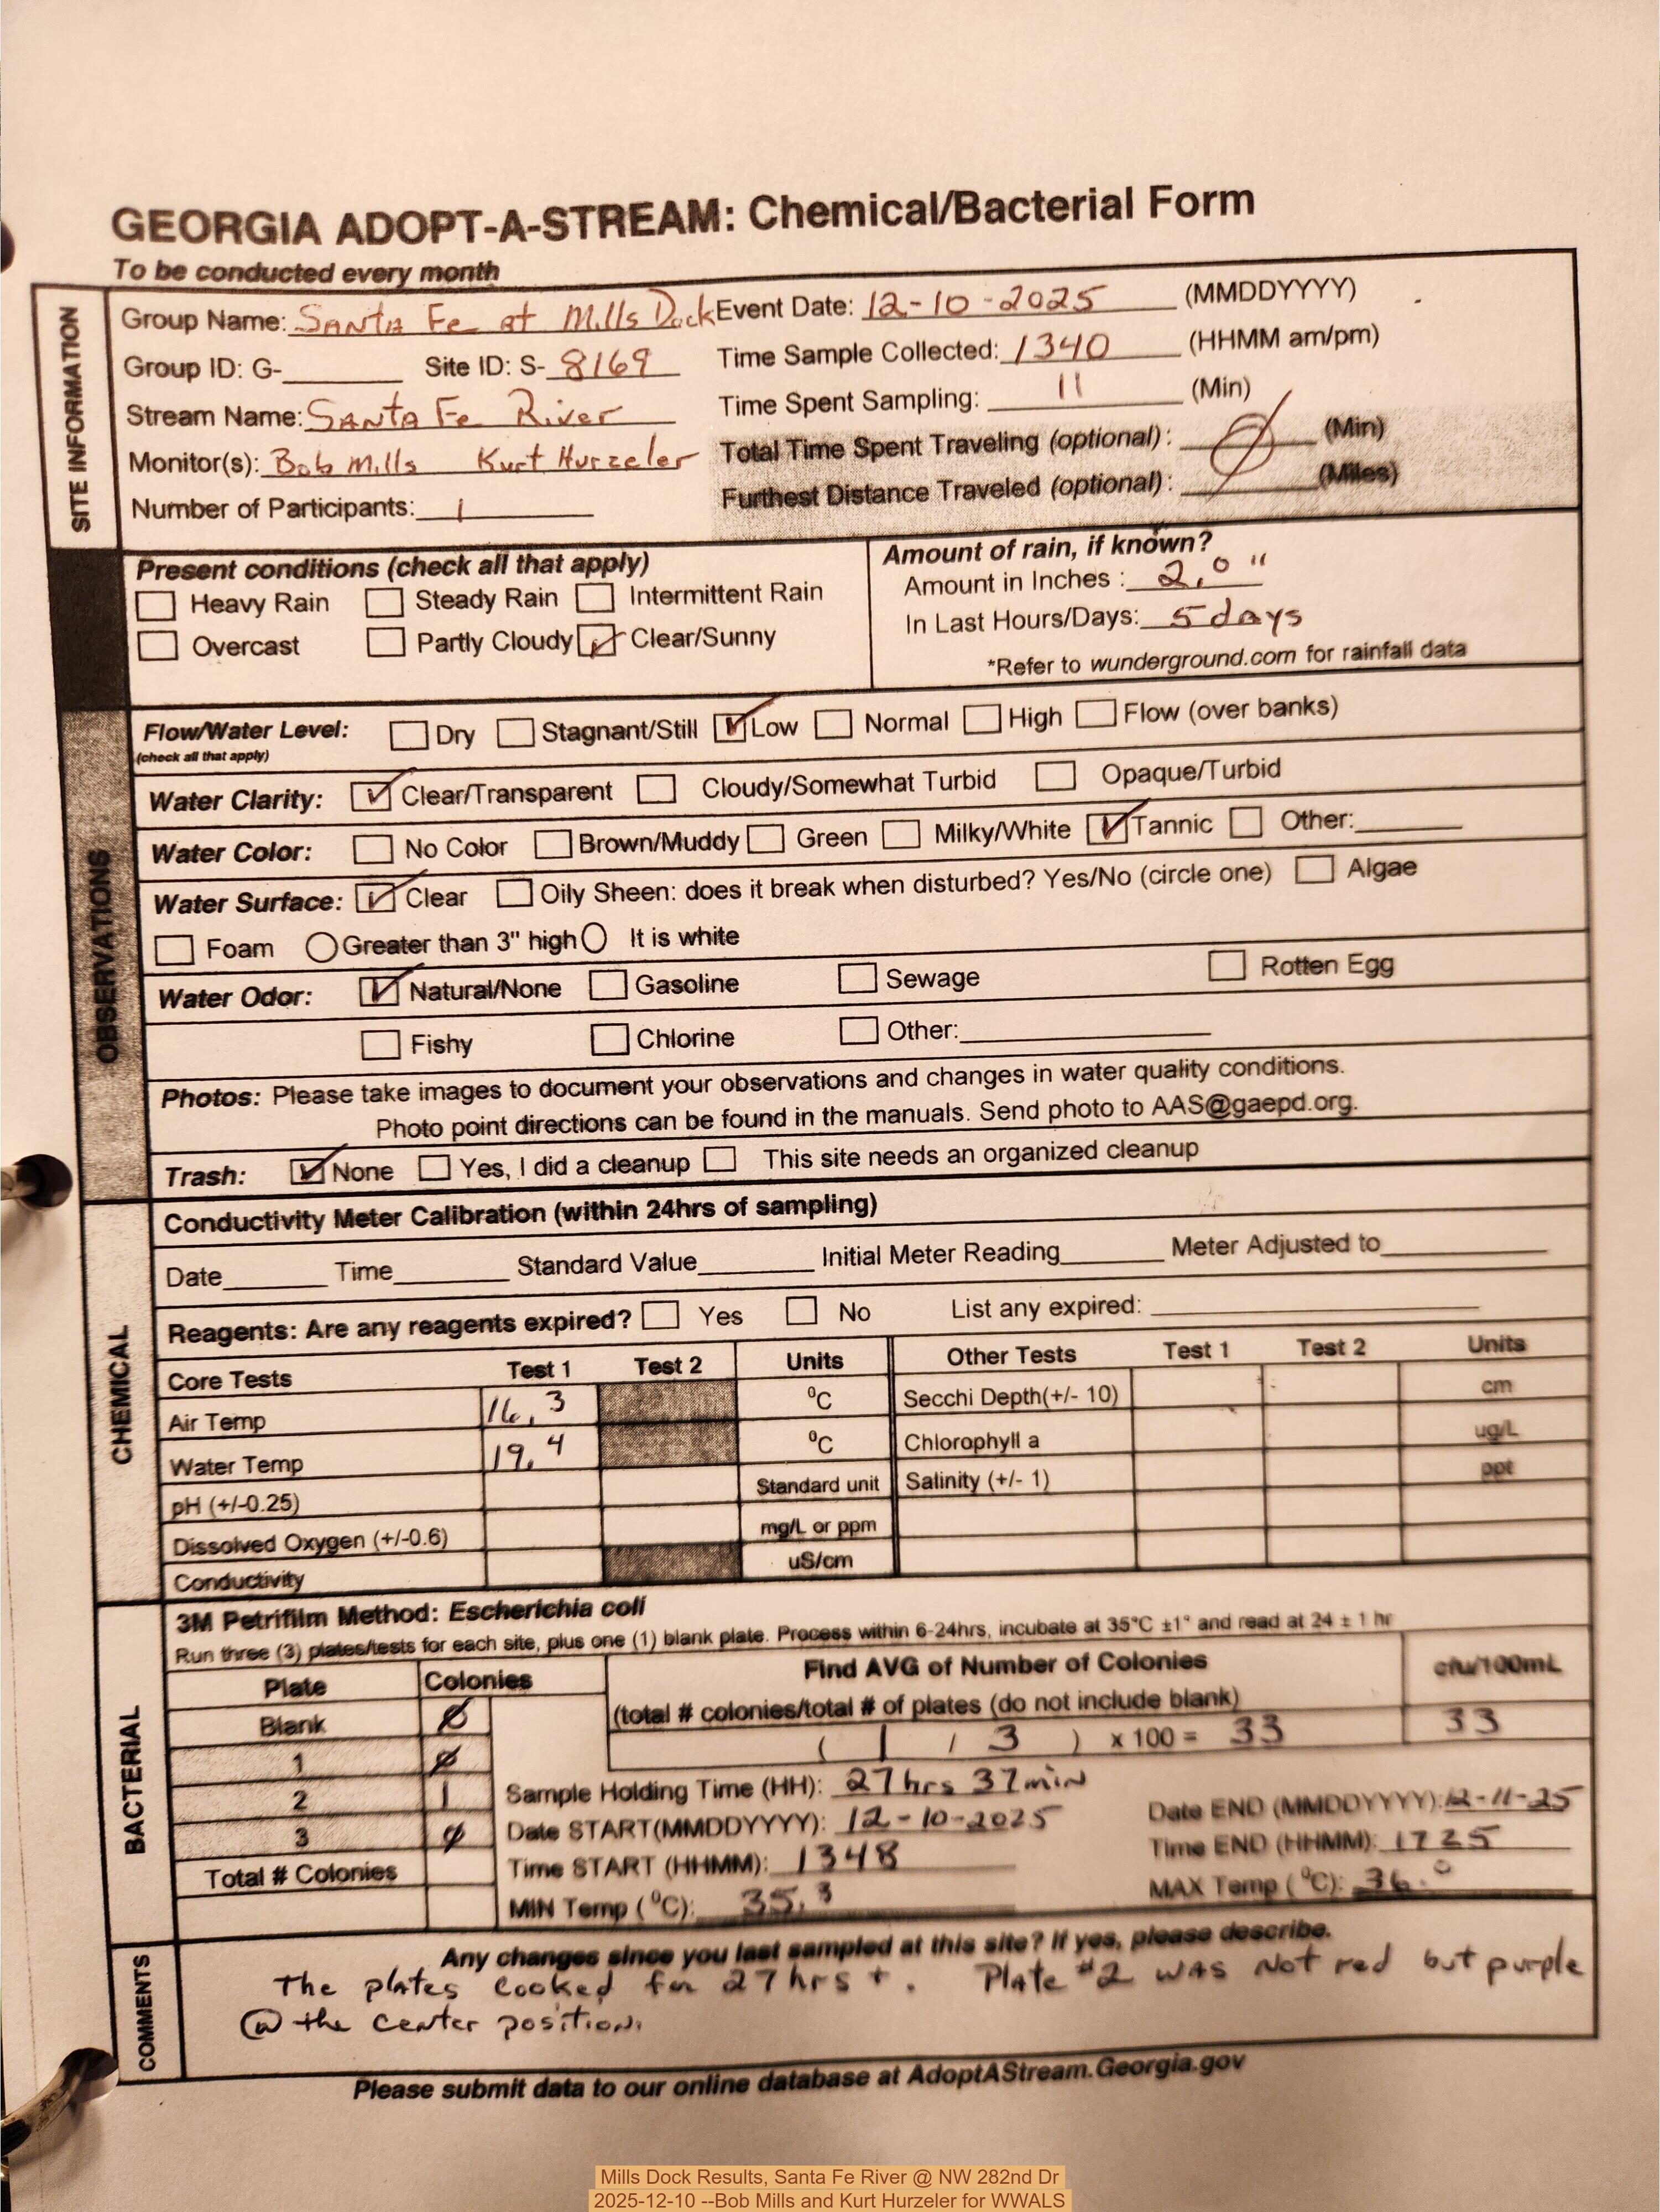 GEORGIA ADOPT-A-STREAM: Chemical/Bacterial Form
To be conducted every month
SITE INFORMATION
Group Name: Santa Fe at Mills Dock Event Date: 12-10-2025 (MMDDYYYY)
Group ID: G-______ Site ID: S- 8169 Time Sample Collected: 1340 (HHMM am/pm)
Stream Name: Santa Fe River Time Spent Sampling: 11 (Min)
Monitor(s): Bob Mills Kurt Hurzeler Total Time Spent Traveling (optional): Ø (Min)
Number of Participants: 1 Furthest Distance Traveled (optional): (Miles)
Present conditions (check all that apply) Amount of rain, if known?
Heavy Rain Steady Rain Intermittent Rain Amount in Inches : 2.0 "
Overcast Partly Cloudy ✓ Clear/Sunny In Last Hours/Days: 5 days
*Refer to wunderground.com for rainfall data
OBSERVATIONS
Flow/Water Level: Dry Stagnant/Still ✓ Low Normal High Flow (over banks)
(check all that apply)
Water Clarity: ✓ Clear/Transparent Cloudy/Somewhat Turbid Opaque/Turbid
Water Color: No Color Brown/Muddy Green Milky/White ✓ Tannic Other:______
Water Surface: ✓ Clear Oily Sheen: does it break when disturbed? Yes/No (circle one) Algae
Foam Greater than 3" high It is white
Water Odor: ✓ Natural/None Gasoline Sewage Rotten Egg
Fishy Chlorine Other:______
Photos: Please take images to document your observations and changes in water quality conditions.
Photo point directions can be found in the manuals. Send photo to AAS@gaepd.org.
Trash: ✓ None Yes, I did a cleanup This site needs an organized cleanup
CHEMICAL
Conductivity Meter Calibration (within 24hrs of sampling)
Date______ Time______ Standard Value______ Initial Meter Reading______ Meter Adjusted to______
Reagents: Are any reagents expired? Yes No List any expired: ______
Core Tests Test 1 Test 2 Units Other Tests Test 1 Test 2 Units
Air Temp 16.3 ⁰C Secchi Depth(+/- 10) cm
Water Temp 19.4 ⁰C Chlorophyll a ug/L
pH (+/-0.25) Standard unit Salinity (+/- 1) ppt
Dissolved Oxygen (+/-0.6) mg/L or ppm
Conductivity uS/cm
BACTERIAL
3M Petrifilm Method: Escherichia coli
Run three (3) plates/tests for each site, plus one (1) blank plate. Process within 6-24hrs, incubate at 35°C ±1° and read at 24 ± 1 hr
Plate Colonies Find AVG of Number of Colonies cfu/100mL
Blank Ø (total # colonies/total # of plates (do not include blank)
1 Ø ( 1 / 3 ) x 100 = 33 33
2 1 Sample Holding Time (HH): 27hrs 37min
3 Ø Date START(MMDDYYYY): 12-10-2025 Date END (MMDDYYYY): 12-11-25
Total # Colonies Time START (HHMM): 1348 Time END (HHMM): 1725
MIN Temp (⁰C): 35.3 MAX Temp (⁰C): 36.0
COMMENTS
Any changes since you last sampled at this site? If yes, please describe.
The plates cooked for 27 hrs +. Plate #2 was not red but purple
@ the center position.
Please submit data to our online database at AdoptAStream.Georgia.gov
Mills Dock Results, Santa Fe River @ NW 282nd Dr
2025-12-10 --Bob Mills and Kurt Hurzeler for WWALS